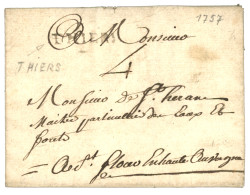 1757
A Monsieur
THIERS
THIERS
4
Monsieur de St
Maitre particulier des Eaux Et
forets
A St flour En haute Auvergne